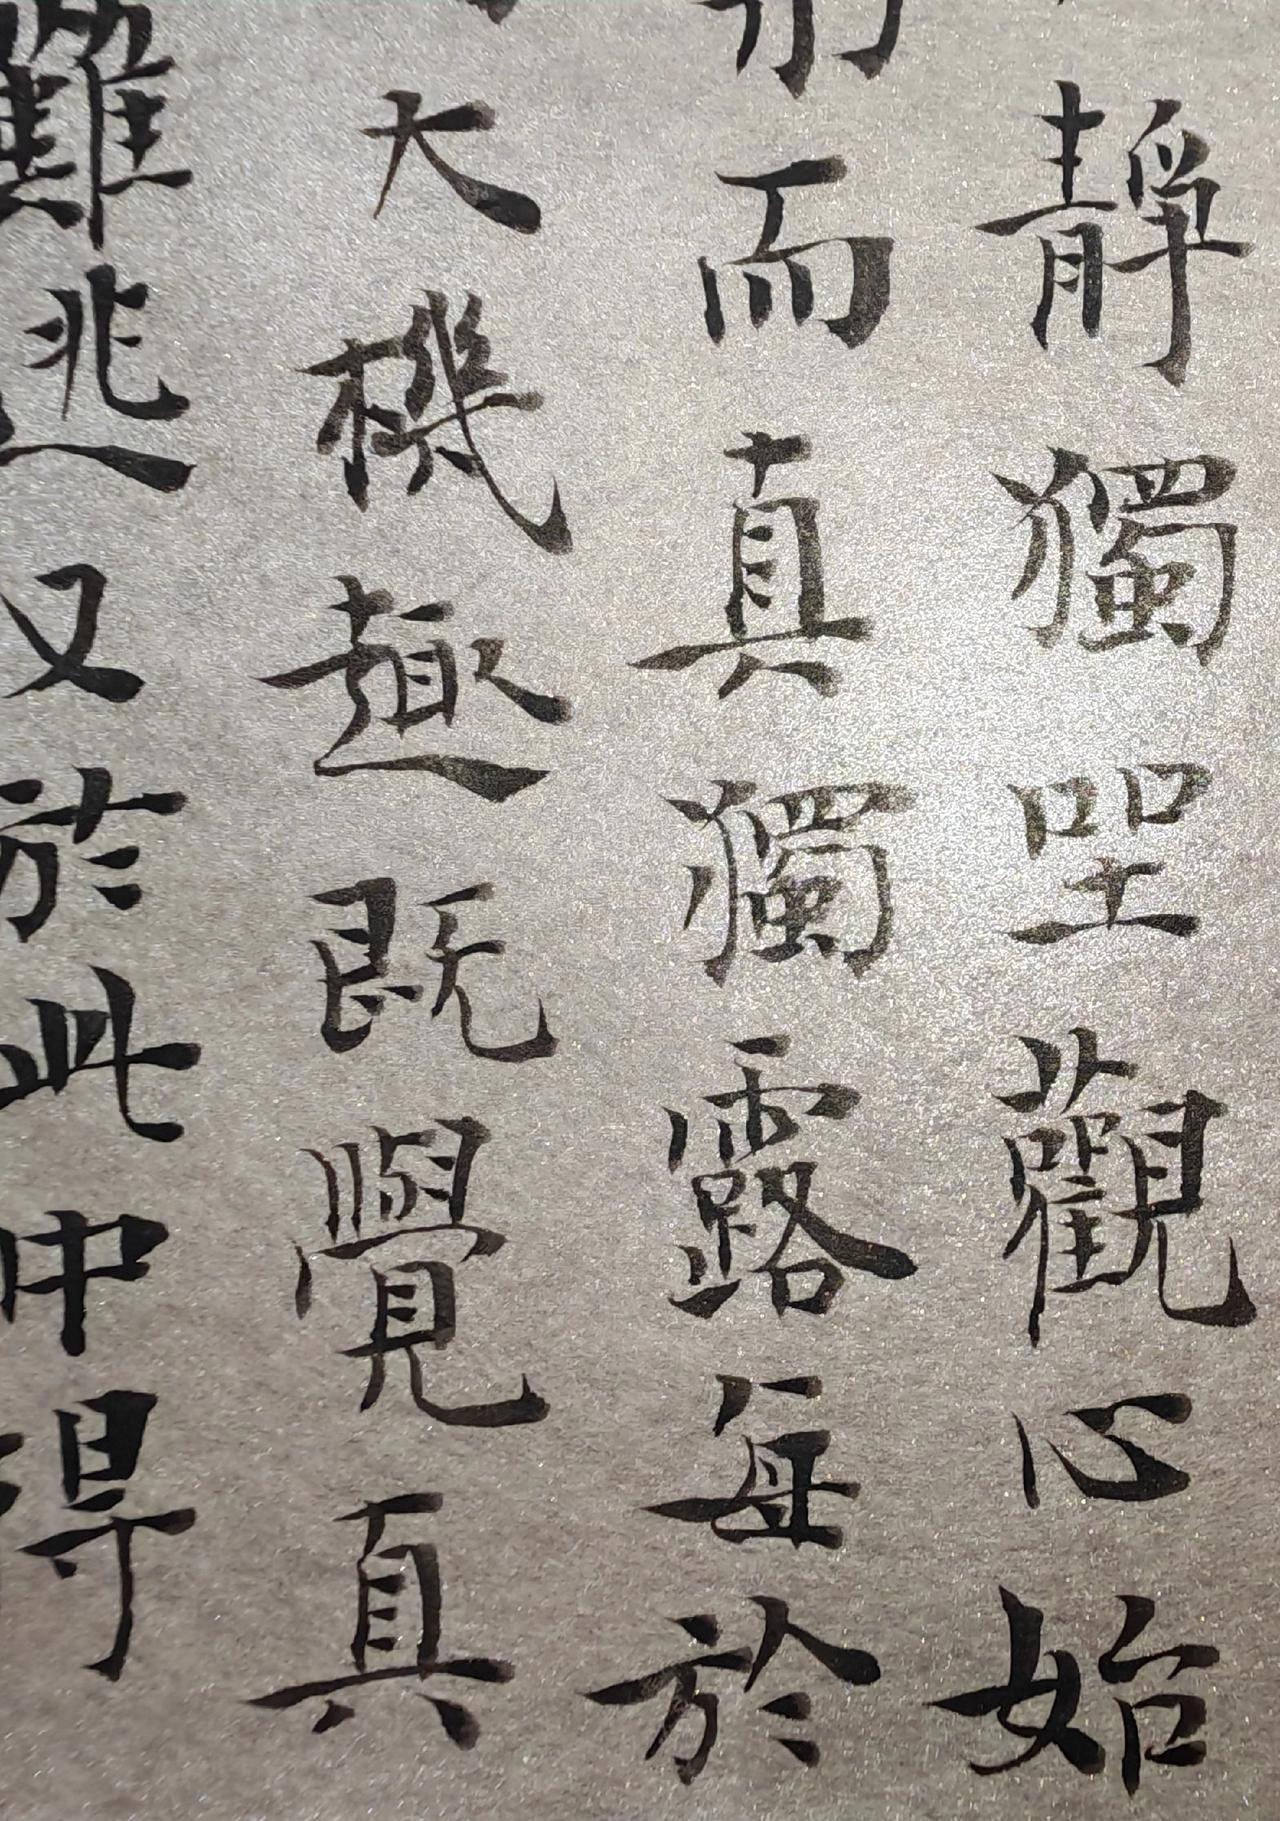 靜獨坐觀心始
而真獨露每於
大機趣既覺真
難逃又於此中得